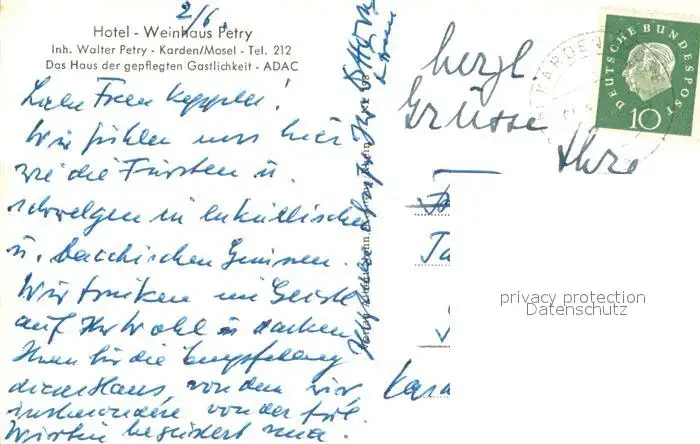 2/6.
Hotel - Weinhaus Petry
Inh. Walter Petry - Karden/Mosel - Tel. 212
Das Haus der gepflegten Gastlichkeit - ADAC
Liebe Frau Keppler!
Wir fühlen uns hier
wie die Fürsten u.
schwelgen in lukullischen
u. bacchischen Genüssen.
Wir trinken im Geiste
auf Ihr Wohl u. danken
Ihnen für die Empfehlung
dieses Hauses, von dem wir,
insbesondere von der frdl.
Wirtin begeistert sind.
herzl.
Grüsse
Ihre
KARDEN
DEUTSCHE BUNDESPOST
10
privacy protection
Datenschutz